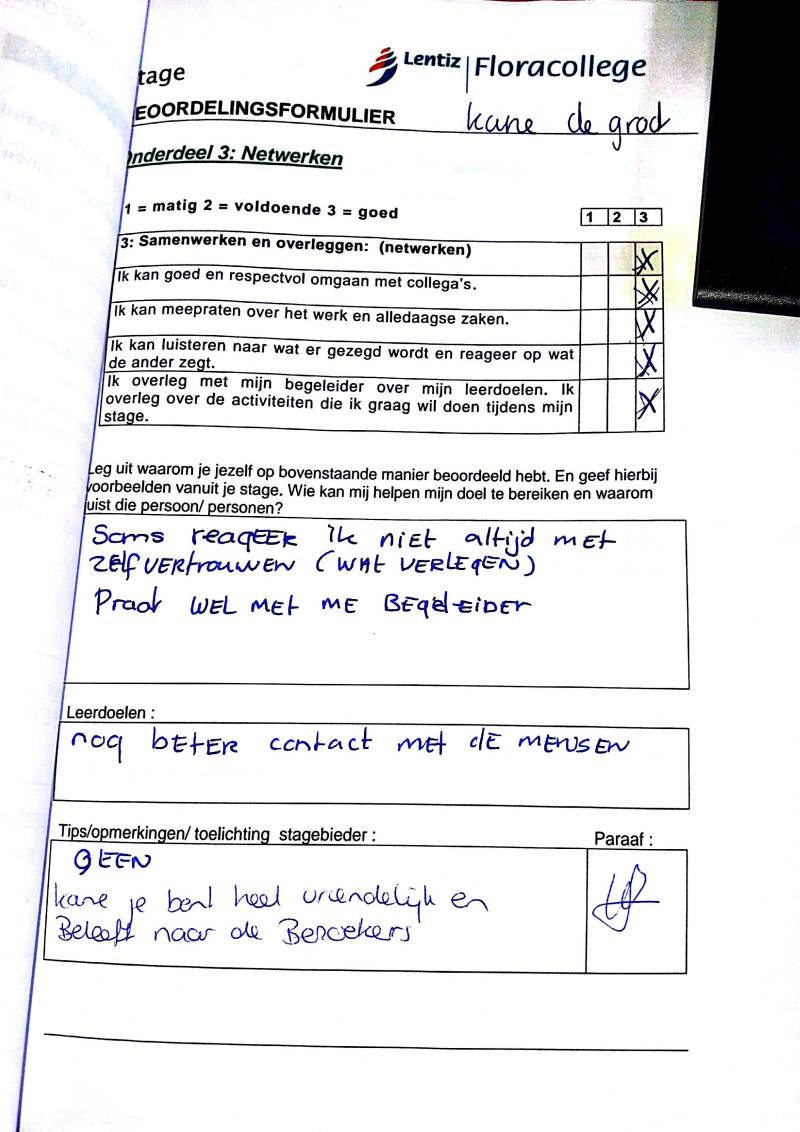 tage
Lentiz | Floracollege
EOORDELINGSFORMULIER
kane de groot
nderdeel 3: Netwerken
1 = matig 2 = voldoende 3 = goed
1 2 3
3: Samenwerken en overleggen: (netwerken)
X
Ik kan goed en respectvol omgaan met collega's.
X
Ik kan meepraten over het werk en alledaagse zaken.
X
Ik kan luisteren naar wat er gezegd wordt en reageer op wat
de ander zegt.
X
Ik overleg met mijn begeleider over mijn leerdoelen. Ik
overleg over de activiteiten die ik graag wil doen tijdens mijn
stage.
X
Leg uit waarom je jezelf op bovenstaande manier beoordeeld hebt. En geef hierbij
voorbeelden vanuit je stage. Wie kan mij helpen mijn doel te bereiken en waarom
uist die persoon/ personen?
Soms reageer ik niet altijd met
zelfvertrouwen (wat verlegen)
Praat wel met me Begeleider
Leerdoelen :
nog beter contact met de mensen
Tips/opmerkingen/ toelichting stagebieder :
Paraaf :
geen
kane je bent heel vriendelijk en
Beleeft naar de Bezoekers